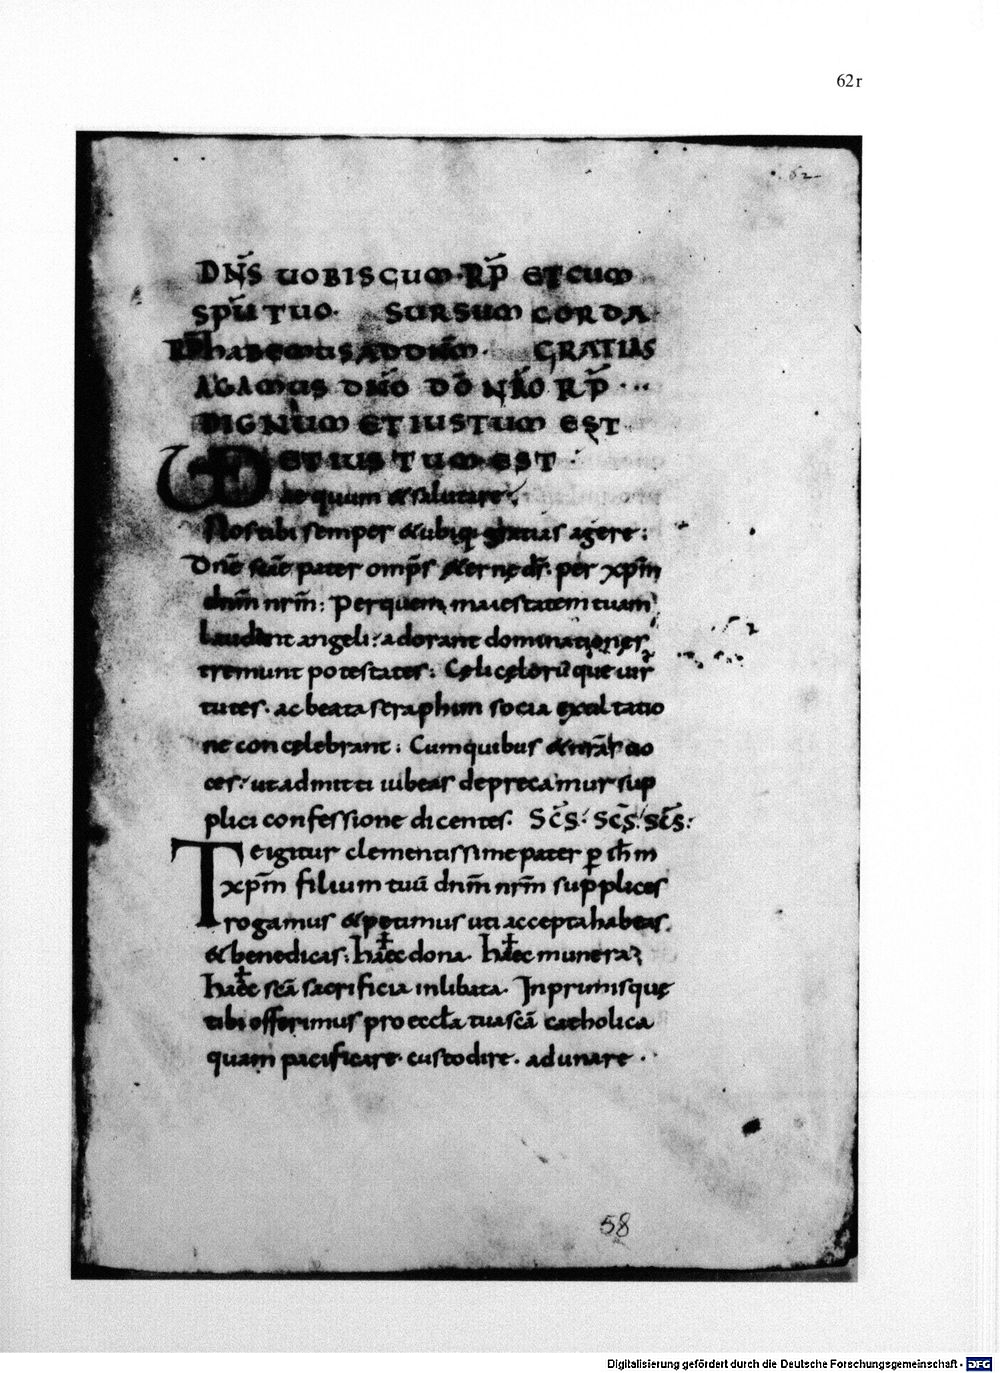 62r
62
DN̄S UOBISCUM. R̄P ET CUM
SPŪ TUO. SURSUM CORDA
R̄P habemus AD DN̄M. GRATIAS
AGAMUS DN̄O DŌ N̄RO R̄P...
DIGNUM ET IUSTUM EST
UD ET IUSTUM EST.
aequum & salutare.
Nos tibi semper & ubiq; gratias agere:
Dn̄e sc̄e pater omp̄s &erne d̄s. per xp̄m
dn̄m nr̄m: Per quem maiestatem tuam
laudant angeli: adorant dominationes
tremunt potestates: Cęli cęlorū que uir
tutes. ac beata seraphim socia exultatio
ne concelebrant: Cum quibus & nr̄as uo
ces: ut admitti iubeas deprecamur sup
plici confessione dicentes. SC̄S: SC̄S: SC̄S:
Te igitur clementissime pater p ih̄m
xp̄m filium tuū dn̄m nr̄m supplices
rogamus & petimus uti accepta habeas.
& benedicas: haec dona. haec munera.
haec sc̄a sacrificia inlibata. In primis quę
tibi offerimus pro eccl̄a tua sc̄a catholica
quam pacificare. custodire. adunare.
58
Digitalisierung gefördert durch die Deutsche Forschungsgemeinschaft - DFG